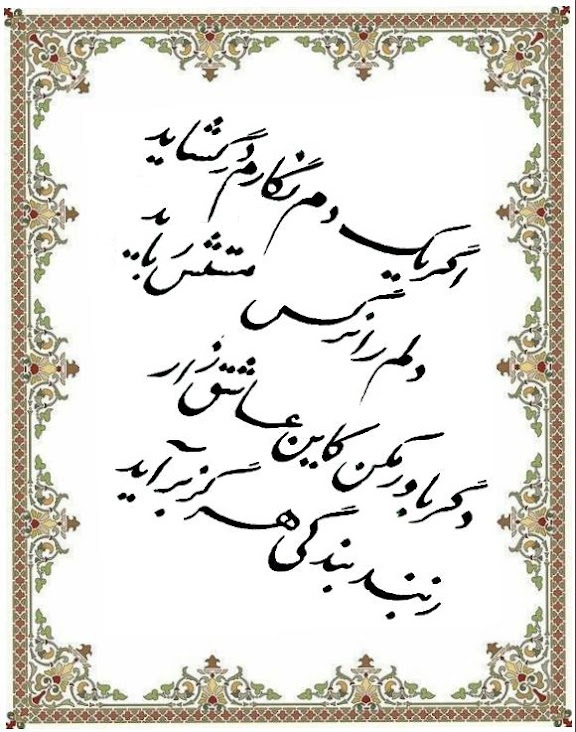 اگر یک دم نگارم در گشاید
دلم را نرگس مستش رباید
دگر باور مکن کاین عاشق زار
ز بند بندگی هرگز برآید